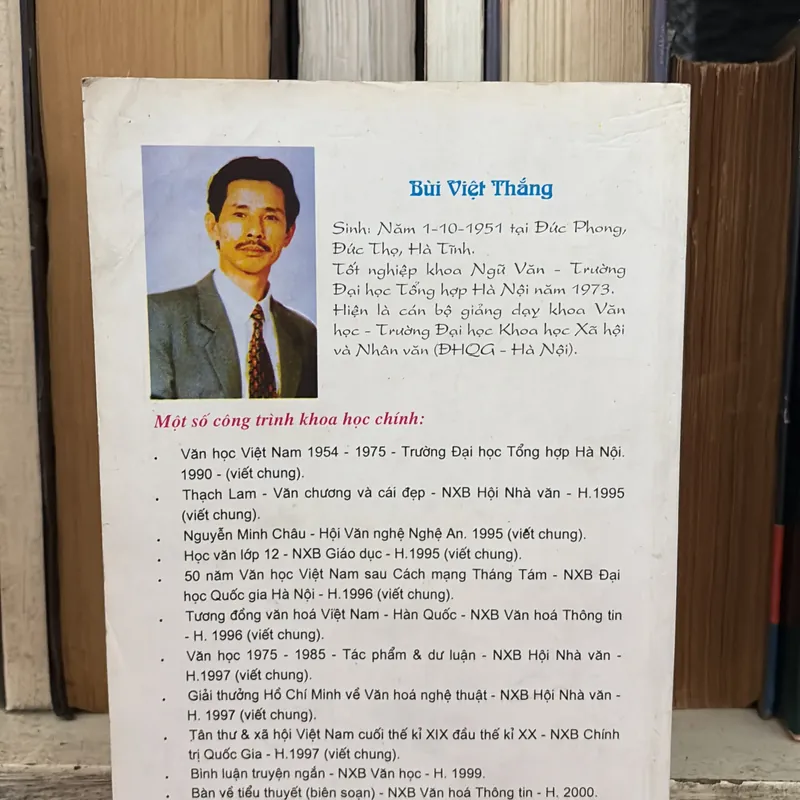 Bùi Việt Thắng
Sinh: Năm 1-10-1951 tại Đức Phong,
Đức Thọ, Hà Tĩnh.
Tốt nghiệp khoa Ngữ Văn - Trường
Đại học Tổng hợp Hà Nội năm 1973.
Hiện là cán bộ giảng dạy khoa Văn
học - Trường Đại học Khoa học Xã hội
và Nhân văn (ĐHQG - Hà Nội).
Một số công trình khoa học chính:
. Văn học Việt Nam 1954 - 1975 - Trường Đại học Tổng hợp Hà Nội.
1990 - (viết chung).
. Thạch Lam - Văn chương và cái đẹp - NXB Hội Nhà văn - H.1995
(viết chung).
. Nguyễn Minh Châu - Hội Văn nghệ Nghệ An. 1995 (viết chung).
. Học văn lớp 12 - NXB Giáo dục - H.1995 (viết chung).
. 50 năm Văn học Việt Nam sau Cách mạng Tháng Tám - NXB Đại
học Quốc gia Hà Nội - H.1996 (viết chung).
. Tương đồng văn hoá Việt Nam - Hàn Quốc - NXB Văn hoá Thông tin
- H. 1996 (viết chung).
. Văn học 1975 - 1985 - Tác phẩm & dư luận - NXB Hội Nhà văn -
H.1997 (viết chung).
. Giải thưởng Hồ Chí Minh về Văn hoá nghệ thuật - NXB Hội Nhà văn -
H. 1997 (viết chung).
. Tân thư & xã hội Việt Nam cuối thế kỉ XIX đầu thế kỉ XX - NXB Chính
trị Quốc Gia - H.1997 (viết chung).
. Bình luận truyện ngắn - NXB Văn học - H. 1999.
. Bàn về tiểu thuyết (biên soạn) - NXB Văn hoá Thông tin - H. 2000.